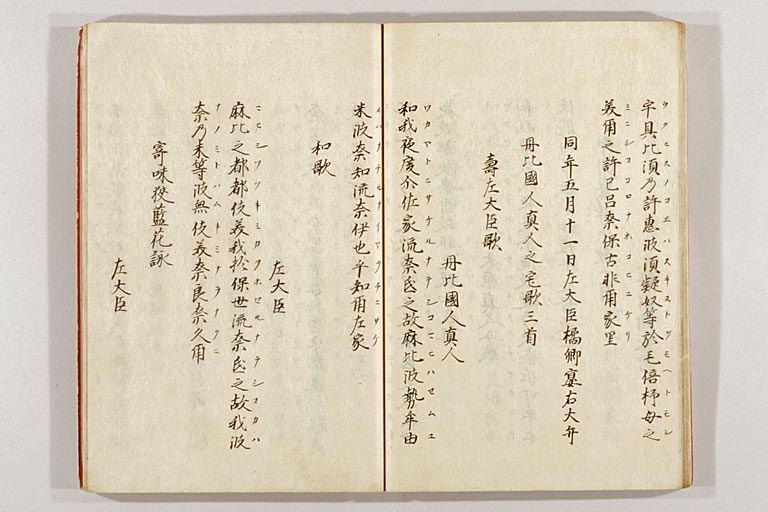 ウグヒスノコエハスキヌトヲモヘトモシ
宇具比須乃許恵波須疑奴等於毛倍杼母之
ミニシココロナホコヒニケリ
美爾之許己呂奈保古非爾家里
同年五月十一日左大臣橘卿宴右大弁
丹比國人真人之宅歌三首
壽左大臣歌
丹比國人真人
ワカヤトニサケルナテシコマヒハセムユ
和我夜度尒佐家流奈弖之故麻比波勢牟由
メハナチルナイヤヲチニサケ
米波奈知流奈伊也乎知爾左家
和歌
左大臣
マヒシツツキミカヲホセルナテシコカハ
麻比之都都伎美我於保世流奈弖之故我波
ナノミトハムキミナラナクニ
奈乃未等波無伎美奈良奈久爾
寄味狹藍花詠
左大臣